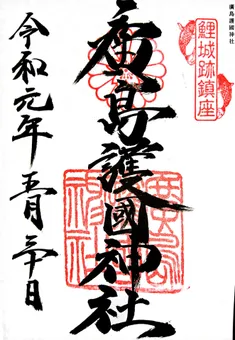 廣島護國神社
鯉城跡鎮座
廣島護國神社
令和元年五月三十日